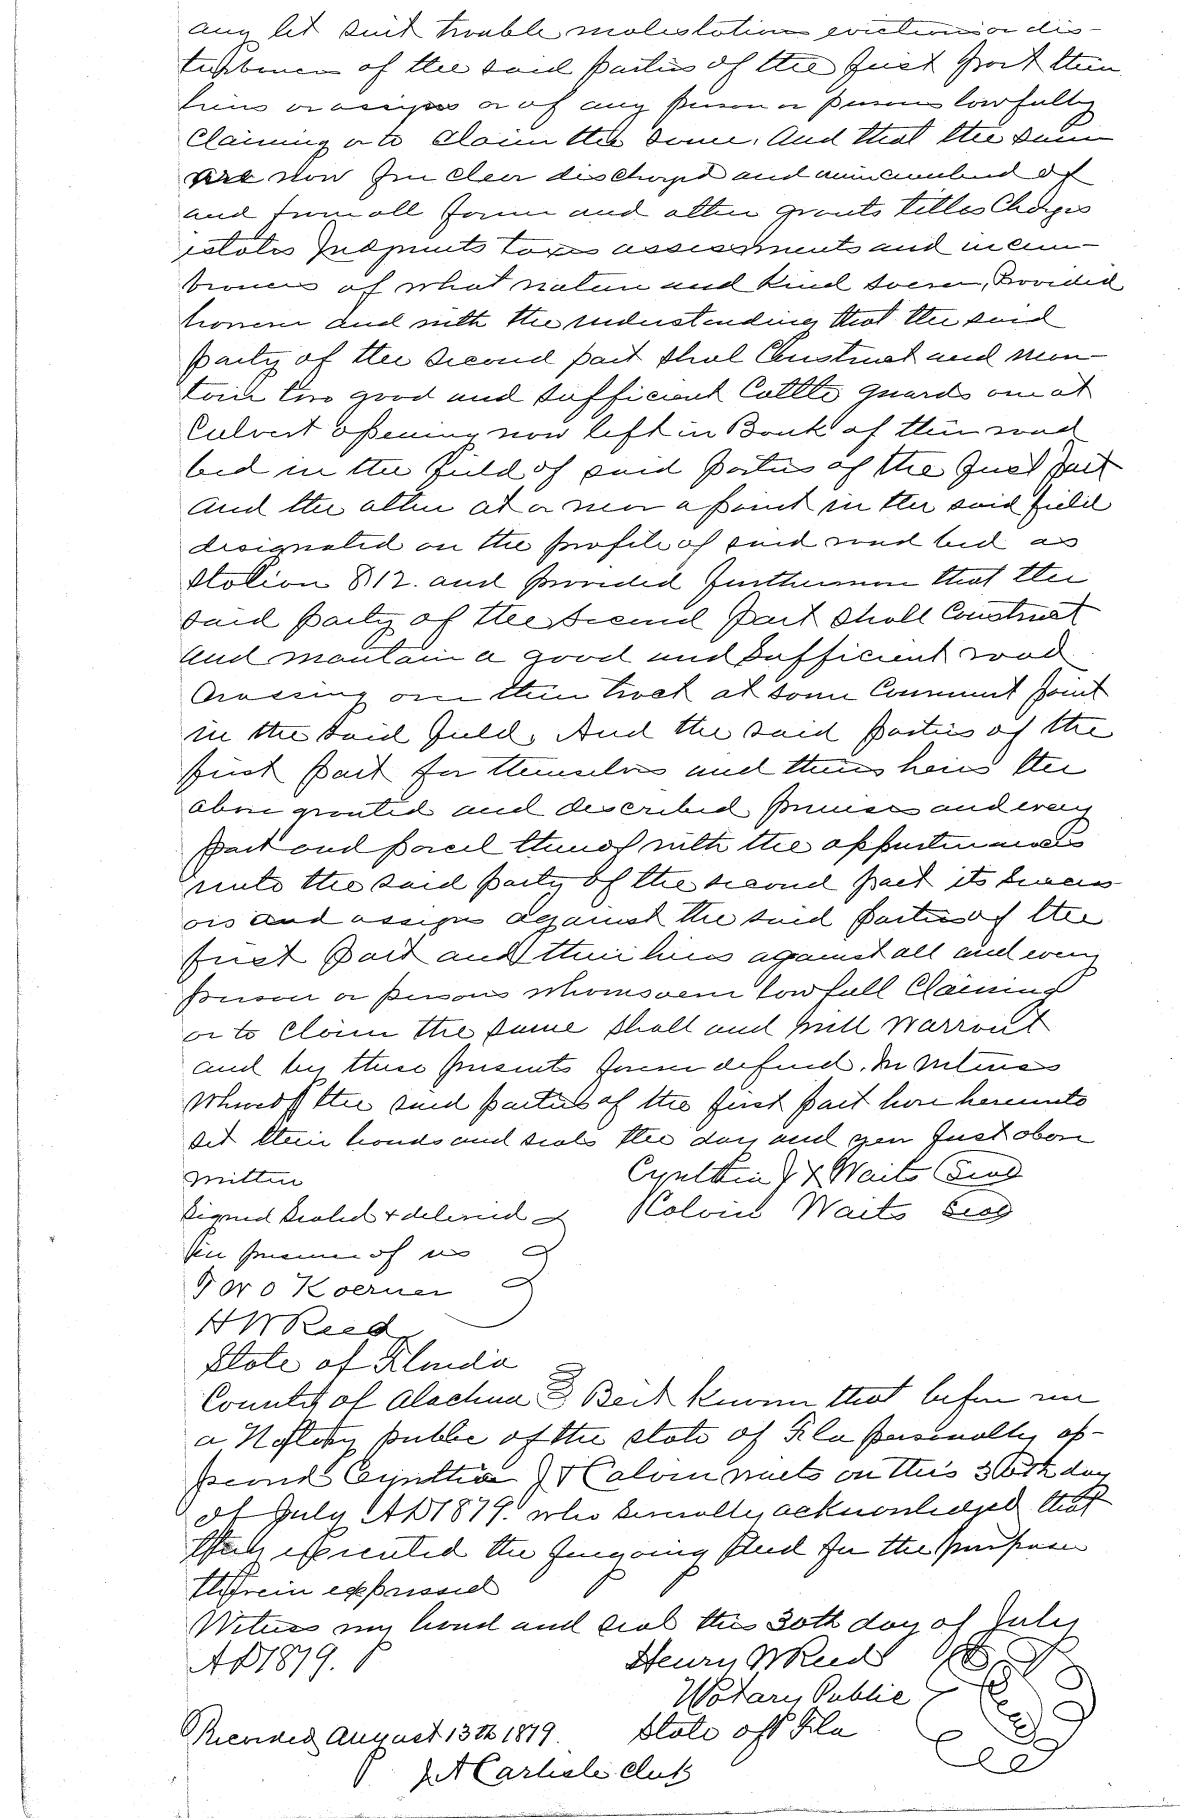 any let suit trouble molestation eviction or dis-
turbance of the said parties of the first part their
heirs or assigns or of any person or persons lawfully
Claiming or to claim the same. And that the same
are now free clear discharged and unincumbered of
and from all former and other grants titles Charges
estates Judgments taxes assessments and incum-
brances of what nature and kind soever, Provided
however and with the understanding that the said
party of the second part shal Construct and main-
tain two good and sufficient Cattle guards one at
Culvert opening now left in Bank of their road
bed in the field of said parties of the first part
and the other at or near a point in the said field
designated on the profile of said road bed as
Station 812. and provided furthermore that the
said party of the second part shall Construct
and mantain a good and sufficient road
Crossing over their track at some Convenient point
in the said field. And the said parties of the
first part for themselves and their heirs the
above granted and described premises and every
part and parcel thereof with the appurtenances
unto the said party of the second part its success
ors and assigns against the said parties of the
first part and their heirs against all and every
person or persons whomsoever lawfull Claiming
or to claim the same shall and will Warrant
and by these presents forever defend. In Witness
Whereof the said parties of the first part have hereunto
set their hands and seals the day and year first above
written
Cynthia J X Waits Seal
Signed Sealed & delivered
Calvin Waits Seal
in presence of us
Theo Koerner
H W Reed
State of Florida
County of Alachua Be it known that before me
a Notary public of the state of Fla personally ap-
peared Cynthia J & Calvin waits on this 30th day
of July AD 1879. who severally acknowledged that
they executed the foregoing deed for the purposes
therein expressed
Witness my hand and seal this 30th day of July
AD 1879.
Henry W Reed
Notary Public
State of Fla
Recorded August 13th 1879.
J A Carlisle Clerk